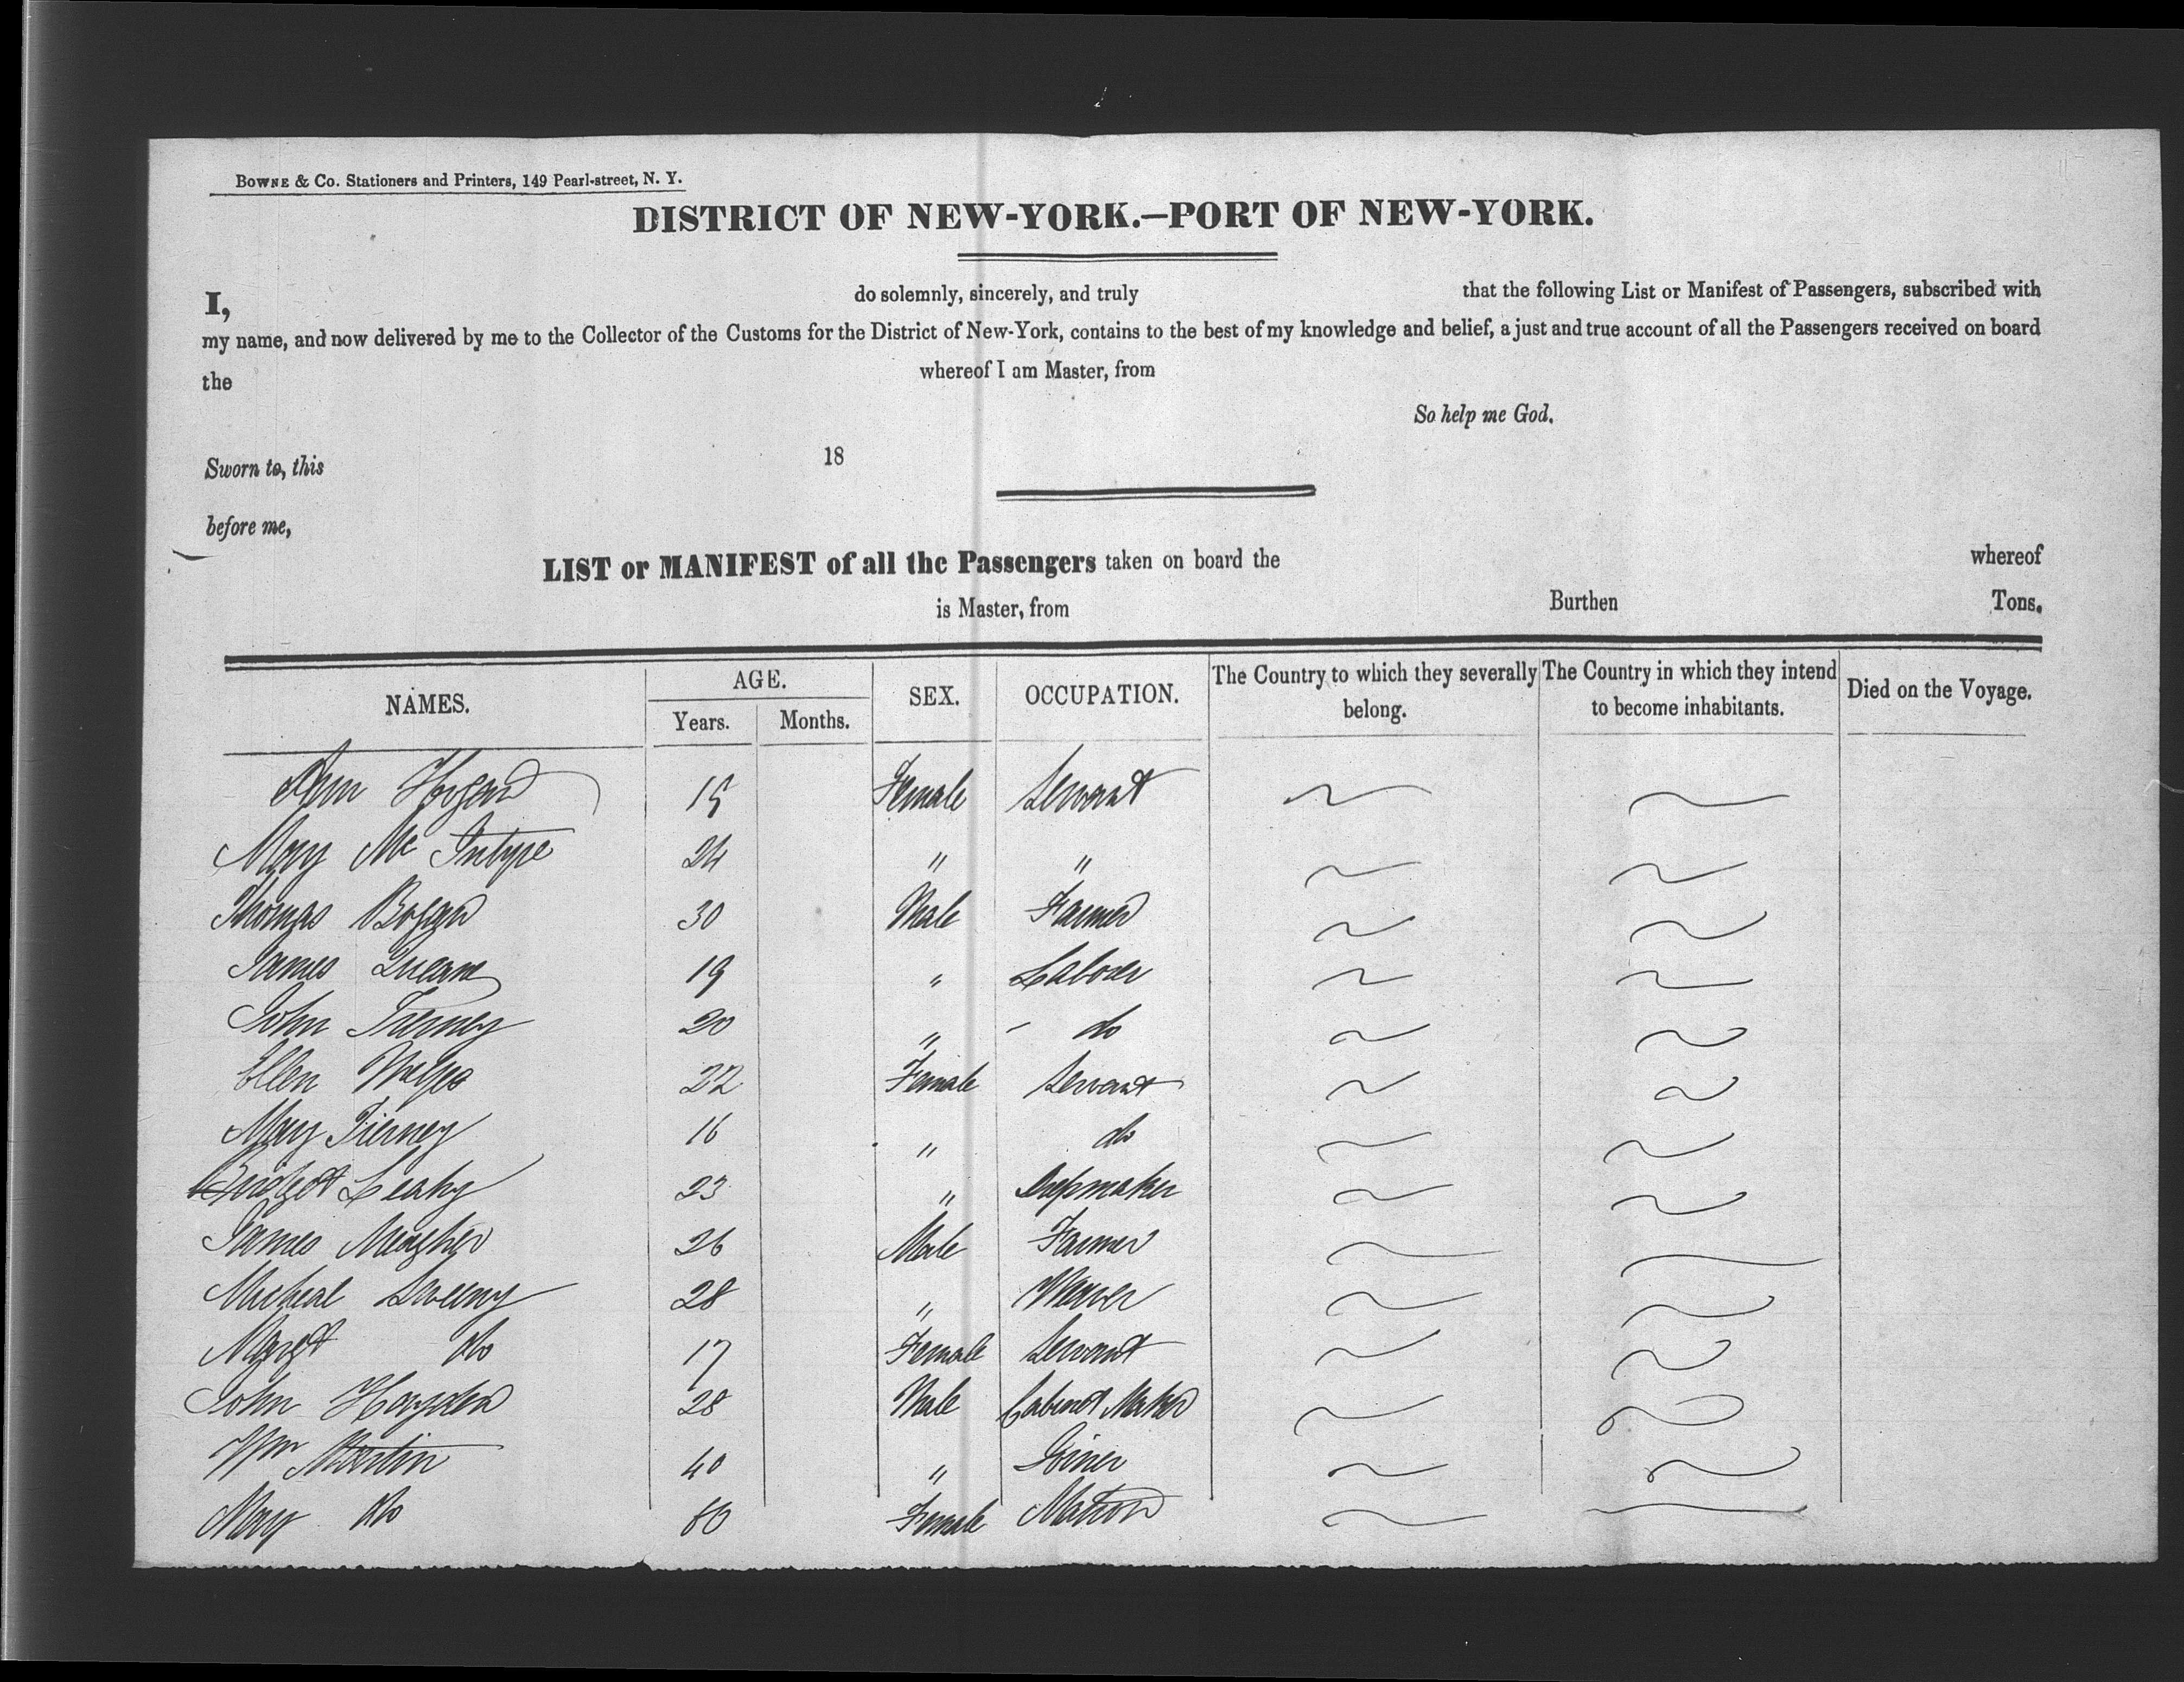 BOWNE & Co. Stationers and Printers, 149 Pearl-street, N. Y.
DISTRICT OF NEW-YORK.—PORT OF NEW-YORK.
I, do solemnly, sincerely, and truly that the following List or Manifest of Passengers, subscribed with
my name, and now delivered by me to the Collector of the Customs for the District of New-York, contains to the best of my knowledge and belief, a just and true account of all the Passengers received on board
the whereof I am Master, from
So help me God.
Sworn to, this 18
before me,
LIST or MANIFEST of all the Passengers taken on board the whereof
is Master, from Burthen Tons.
NAMES. AGE. Years. Months. SEX. OCCUPATION. The Country to which they severally belong. The Country in which they intend to become inhabitants. Died on the Voyage.
Ann Hogan Female Servant
Mary Mc Intyre 24 " "
Thomas 30 Male Farmer
James 19 " Laborer
John Tierney 20 " do
Ellen 22 Female Servant
Mary Tierney 16 " do
Bridget Leahy 23 "
James Meagher 26 Male Farmer
Micheal Sweeny 28 " Weaver
Margt do 17 Female Servant
John Hayden 28 Male Cabinet Maker
Wm Martin 40 " Joiner
Mary do Female Matron